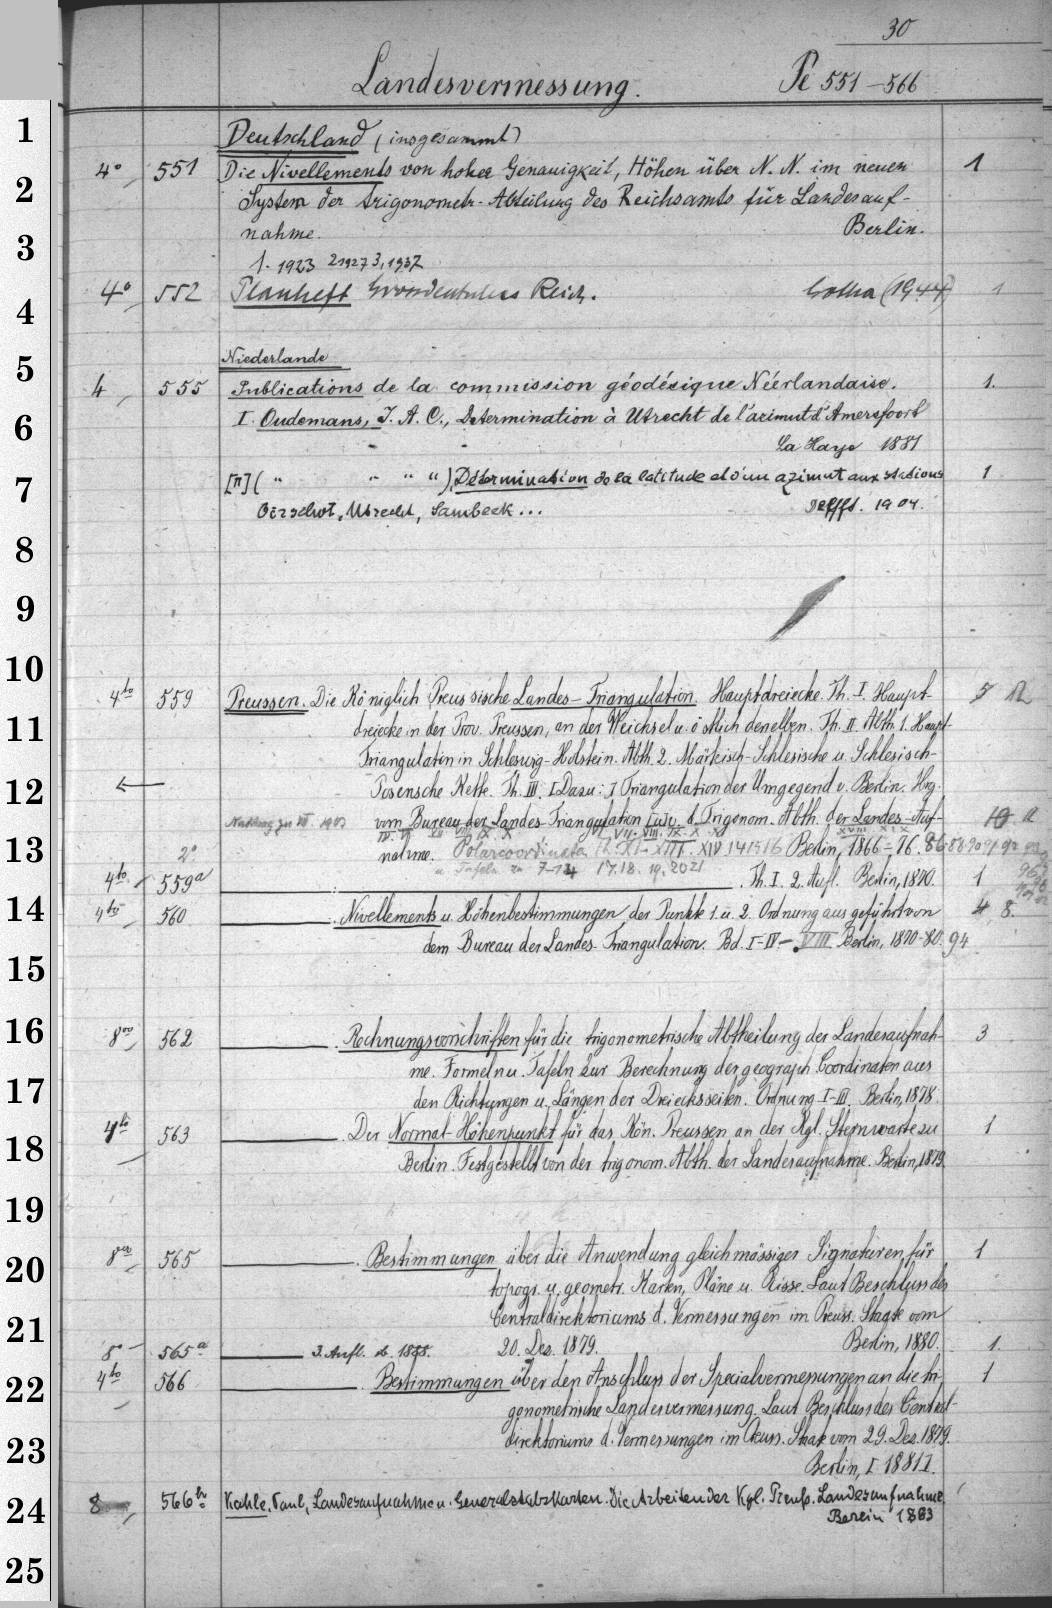 30
Landesvermessung. Pe 551-566
1
Deutschland (insgesammt)
4° 551 Die Nivellements von hoher Genauigkeit, Höhen über N. N. im neuen 1
2
System der trigonometr. Abteilung des Reichsamts für Landesauf-
nahme. Berlin.
3
1. 1923 2 1927 3, 1937
4° 552 Planheft Grossdeutsches Reich. Gotha (1944) 1
4
Niederlande
5
4 555 Publications de la commission géodésique Néérlandaise. 1.
I. Oudemans, J. A. C., Determination à Utrecht de l'azimut d'Amersfoort
6
La Haye 1881
[II] ( " " " " ) Détermination de la latitude et d'un azimut aux stations 1
7
Oirschot, Utrecht, Sambeek... Delfft. 1904.
8
9
10
4to 559 Preussen. Die Königlich Preussische Landes-Triangulation. Hauptdreiecke. Th. I. Haupt- 5 12
dreiecke in der Prov. Preussen, an der Weichsel u. östlich denselben. Th. II. Abth. 1. Haupt-
11
Triangulation in Schleswig-Holstein. Abth. 2. Märkisch-Schlesische u. Schlesisch-
12
Posensche Kette. Th. III. I Dazu: I Triangulation der Umgegend v. Berlin. Hrg.
vom Bureau der Landes-Triangulation u. d. Trigonom. Abth. der Landes-Auf-
13
nahme. Polarcoordinaten Th. XI-XIII. XIV 14 15 16 Berlin, 1866-76.
u Tafeln zu 7-14 17. 18. 19. 20 21
4to 559a Th. I. 2. Aufl. Berlin, 1870. 1
14
4to 560 Nivellements u. Höhenbestimmungen der Punkte 1. u. 2. Ordnung ausgeführt von 4 8.
dem Bureau der Landes-Triangulation. Bd. I-IV-VIII Berlin, 1870-80. 94
15
16
8vo 562 Rechnungsvorschriften für die trigonometrische Abtheilung der Landesaufnah- 3
me. Formeln u. Tafeln zur Berechnung der geograph. Coordinaten aus
17
den Richtungen u. Längen der Dreiecksseiten. Ordnung I-III. Berlin, 1878.
4to 563 Der Normal-Höhenpunkt für das Kön. Preussen an der Kgl. Sternwarte zu 1
18
Berlin. Festgestellt von der trigonom. Abth. der Landesaufnahme. Berlin, 1879.
19
8vo 565 Bestimmungen über die Anwendung gleichmässiger Signaturen für 1
20
topogr. u. geometr. Karten, Pläne u. Risse. Laut Beschluss des
Centraldirektoriums d. Vermessungen im Preuss. Staate vom
21
20. Dez. 1879. Berlin, 1880.
8° 565a 3. Aufl. 1.
22
4to 566 Bestimmungen über den Anschluss der Specialvermessungen an die tri- 1
gonometrische Landesvermessung. Laut Beschluss des Central-
23
direktoriums d. Vermessungen im Preuss. Staate vom 29. Dez. 1879.
Berlin, I 1881 I.
24
8 566b Kahle, Paul, Landesaufnahme u. Generalstabskarten. Die Arbeiten der Kgl. Preuß. Landesaufnahme
Berlin 1893
25